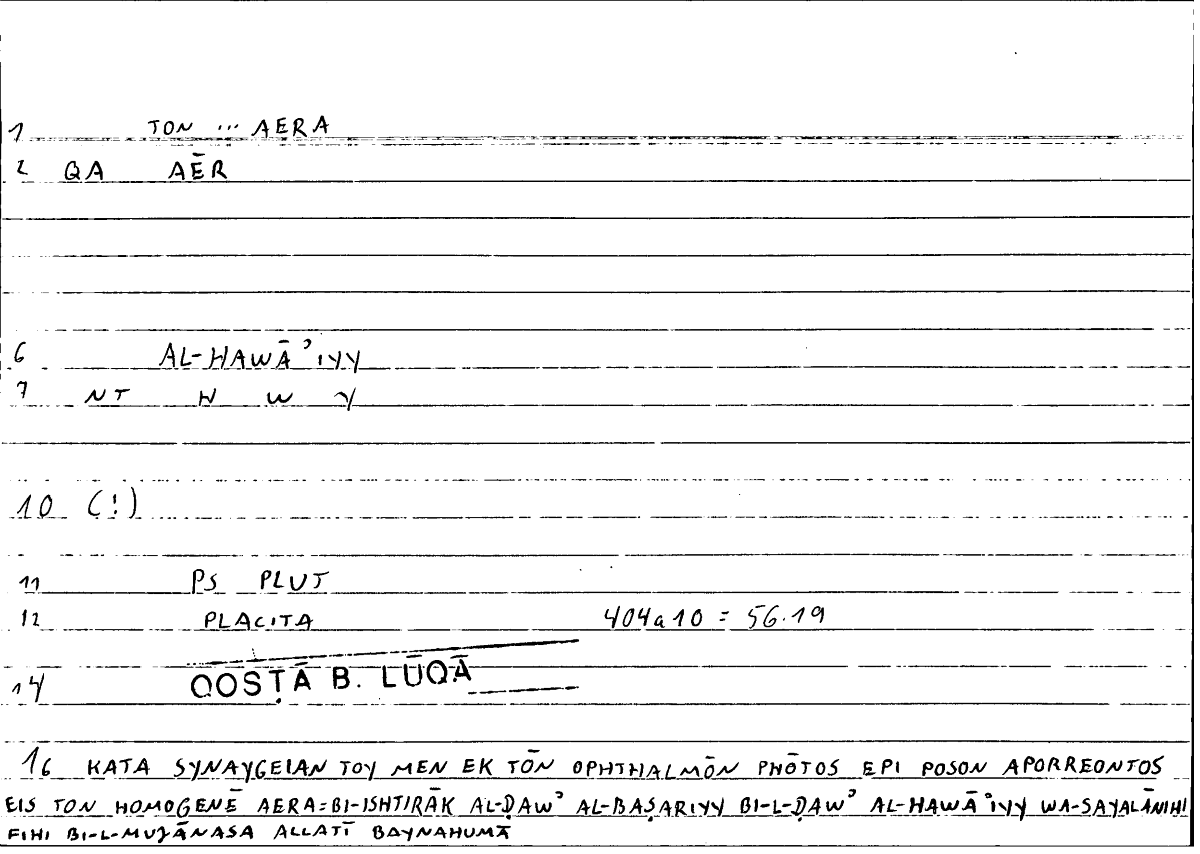 1 TON ... AERA
2 QA AĒR
6 AL-HAWĀʾIYY
7 NT H W Y
10 (!)
11 PS PLUT
12 PLACITA 404a10 = 56.19
14 QOSṬĀ B. LŪQĀ
16 KATA SYNAYGEIAN TOY MEN EK TŌN OPHTHALMŌN PHŌTOS EPI POSON APORREONTOS
EIS TON HOMOGENĒ AERA = BI-ISHTIRĀK AL-ḌAWʾ AL-BAṢARIYY BI-L-ḌAWʾ AL-HAWĀʾIYY WA-SAYALĀNIHI
FIHI BI-L-MUJĀNASA ALLATĪ BAYNAHUMĀ